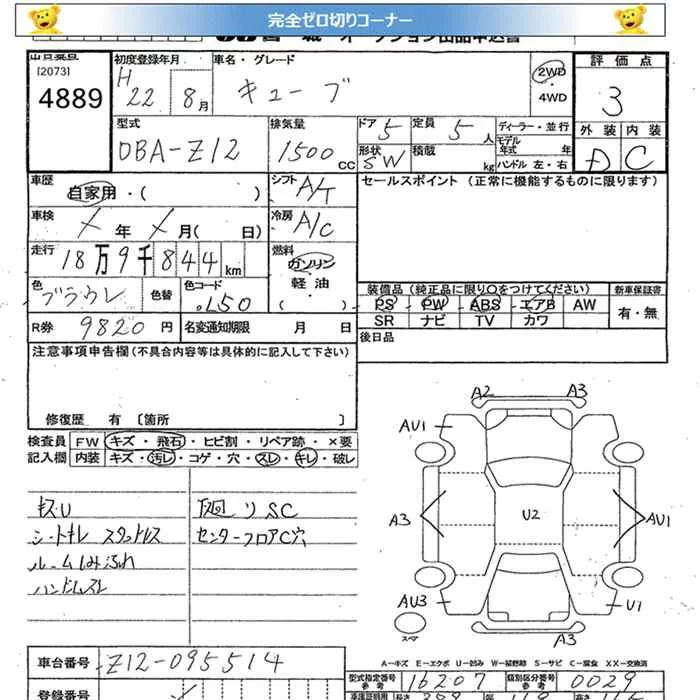 完全ゼロ切りコーナー
[2073]
4889
初度登録年月
H 22 8月
車名・グレード
キューブ
2WD
・
4WD
評価点
3
外装 内装
D C
型式
DBA-Z12
排気量
1500 CC
ドア 5
定員 5人
形状 SW
積載 kg
ディーラー・並行
モデル年式 年
ハンドル 左・右
車歴
自家用・( )
シフト A/T
セールスポイント (正常に機能するものに限ります)
車検
年 月( 日)
冷房 A/C
走行
18万9千844km
燃料
ガソリン
軽油
( )
色
色替
色コード
L50
装備品(純正品に限り〇をつけてください)
新車保証書
PS PW ABS エアB AW
有・無
SR ナビ TV カワ
R券 9820円
名変通知期限 月 日
後日品
注意事項申告欄(不具合内容等は具体的に記入して下さい)
修復歴 有〔箇所 〕
検査員
記入欄
FW キズ・飛石・ヒビ割・リペア跡・×要
内装 キズ・汚レ・コゲ・穴・スレ・キレ・破レ
A2
A3
AU1
A3
U2
AU1
AU3
U1
A3
スペア
キズU
シートキレ
ハンドルスレ
下回リSC
センターフロアC穴
車台番号 Z12-095514
A-キズ E-エクボ U-凹み W-補修跡 S-サビ C-腐食 XX-交換済
登録番号
型式指定番号 参考 16207
類別区分番号 参考 0029